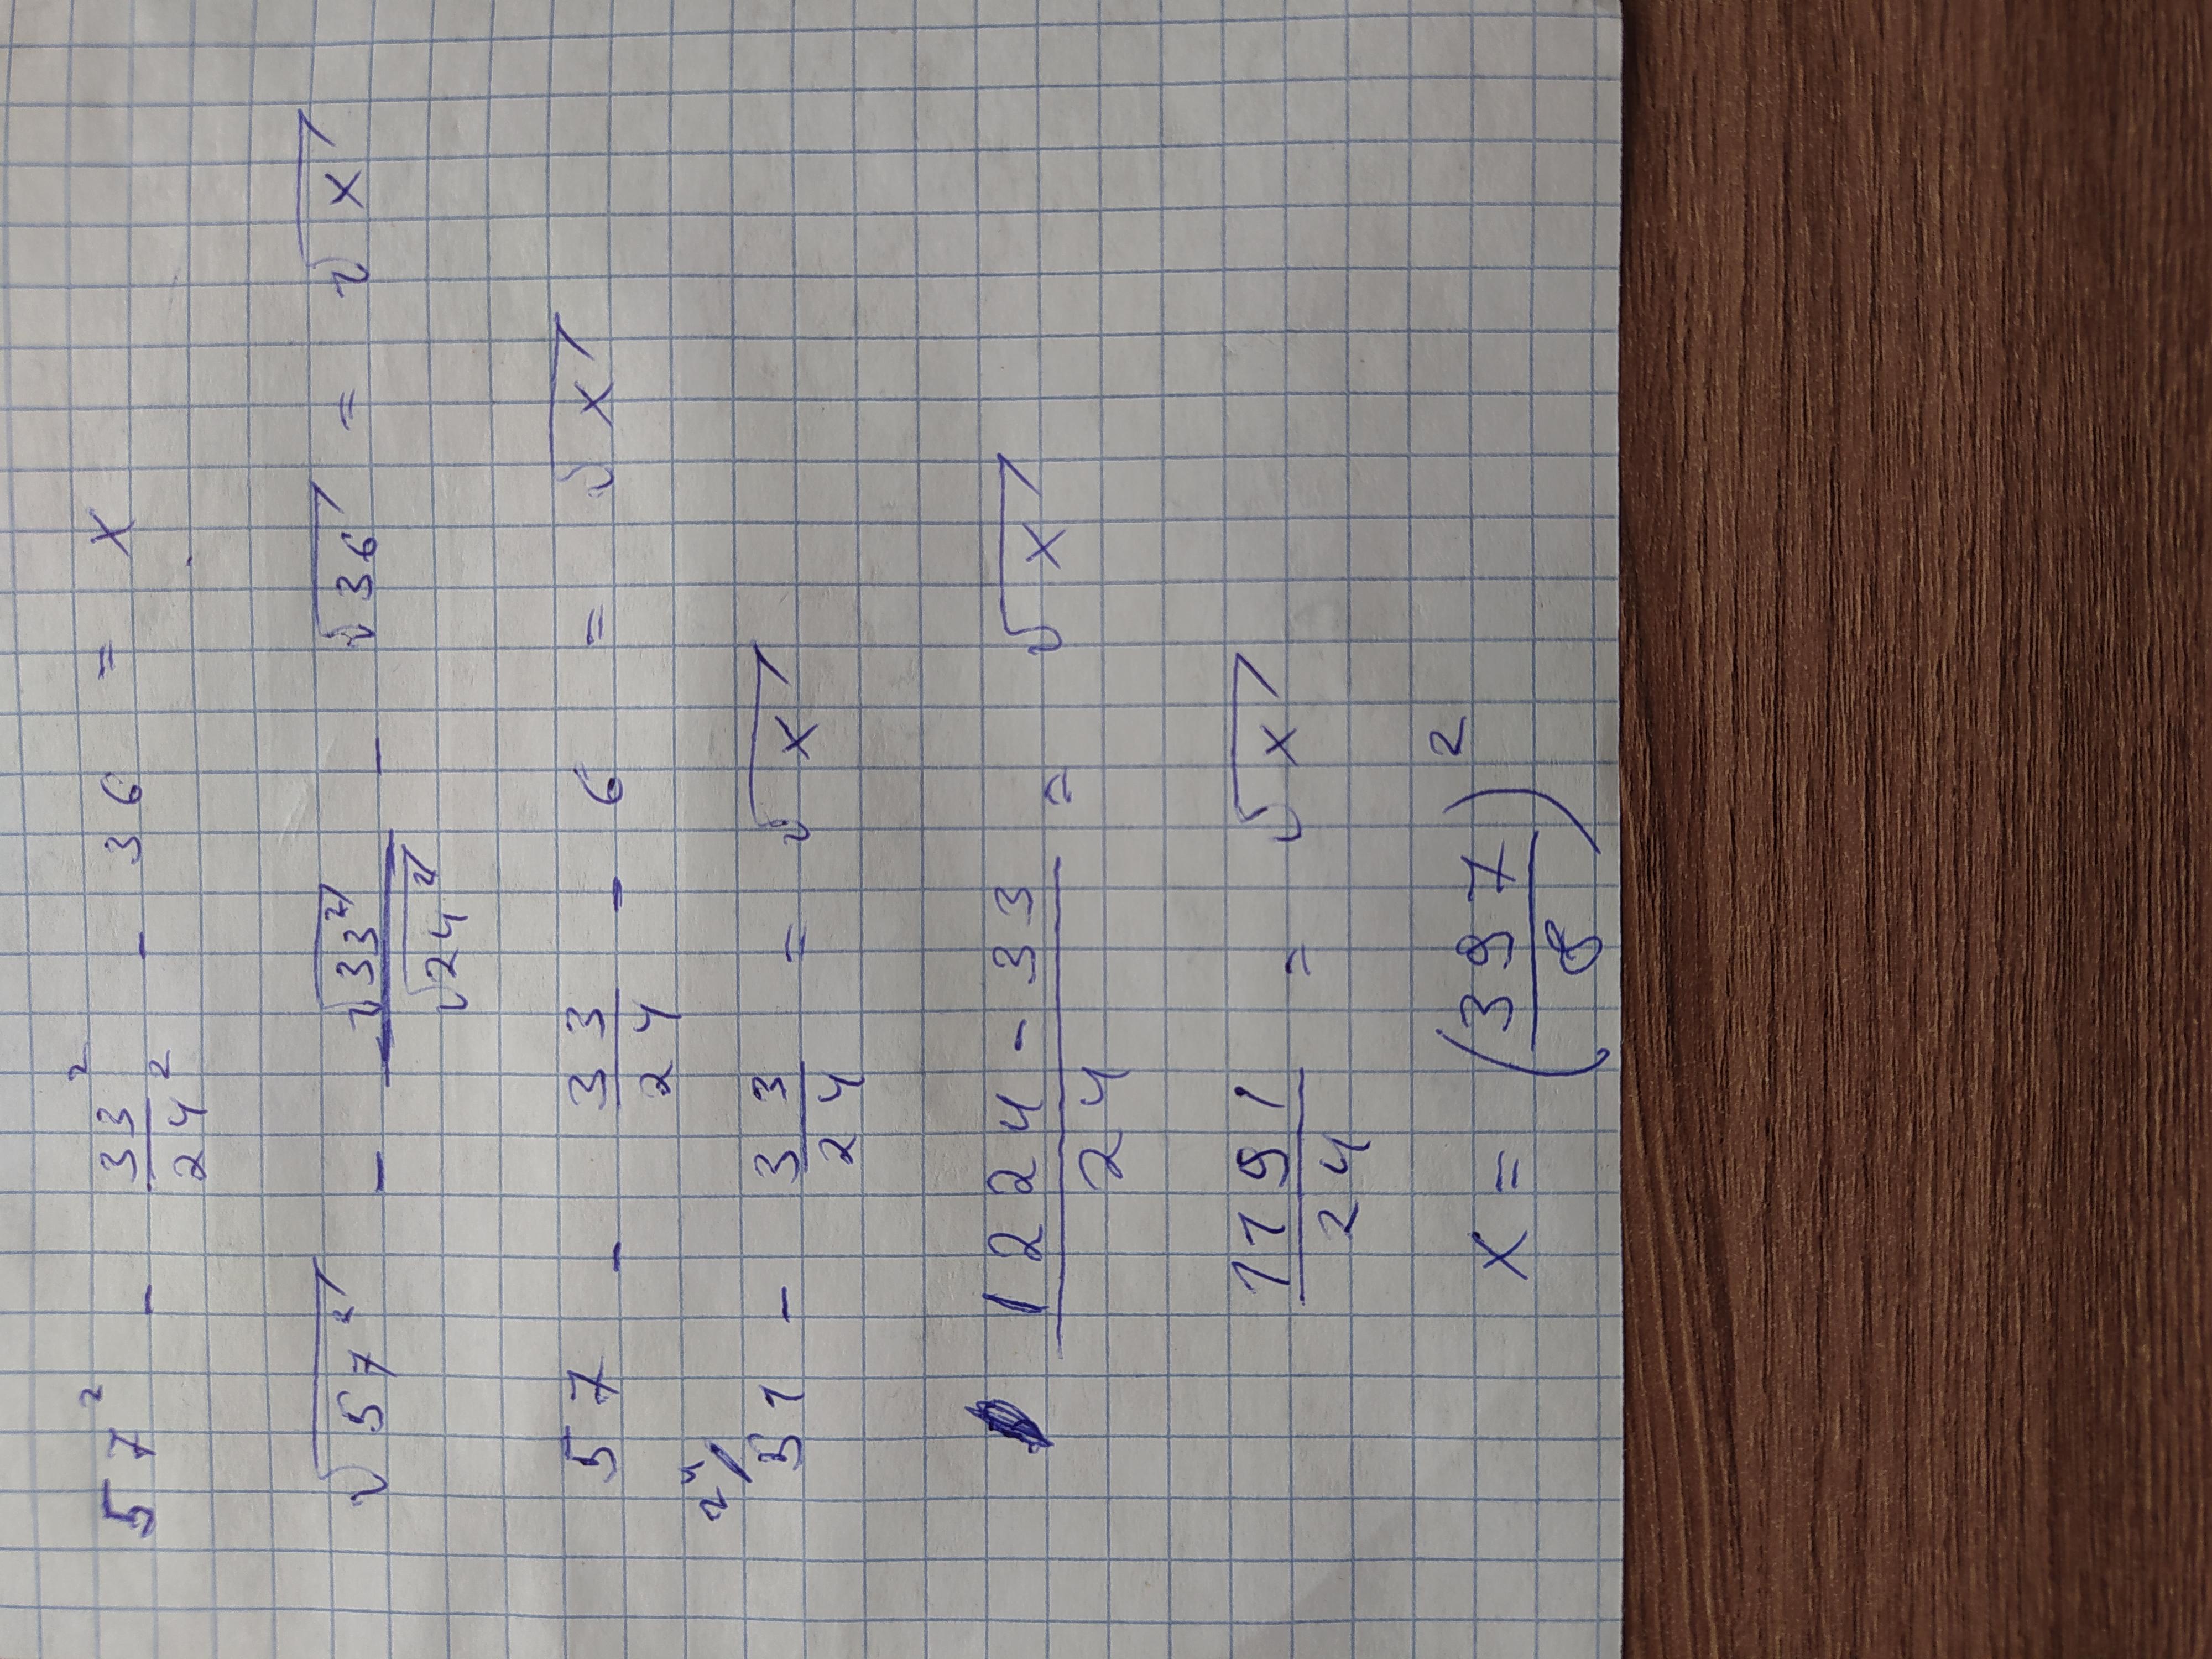 57² - 33²/24² - 36 = x
√57² - √33²/√24² - √36 = √x
57 - 33/24 - 6 = √x
24/ 51 - 33/24 = √x
1224 - 33/24 = √x
1191/24 = √x
x = (397/8)²